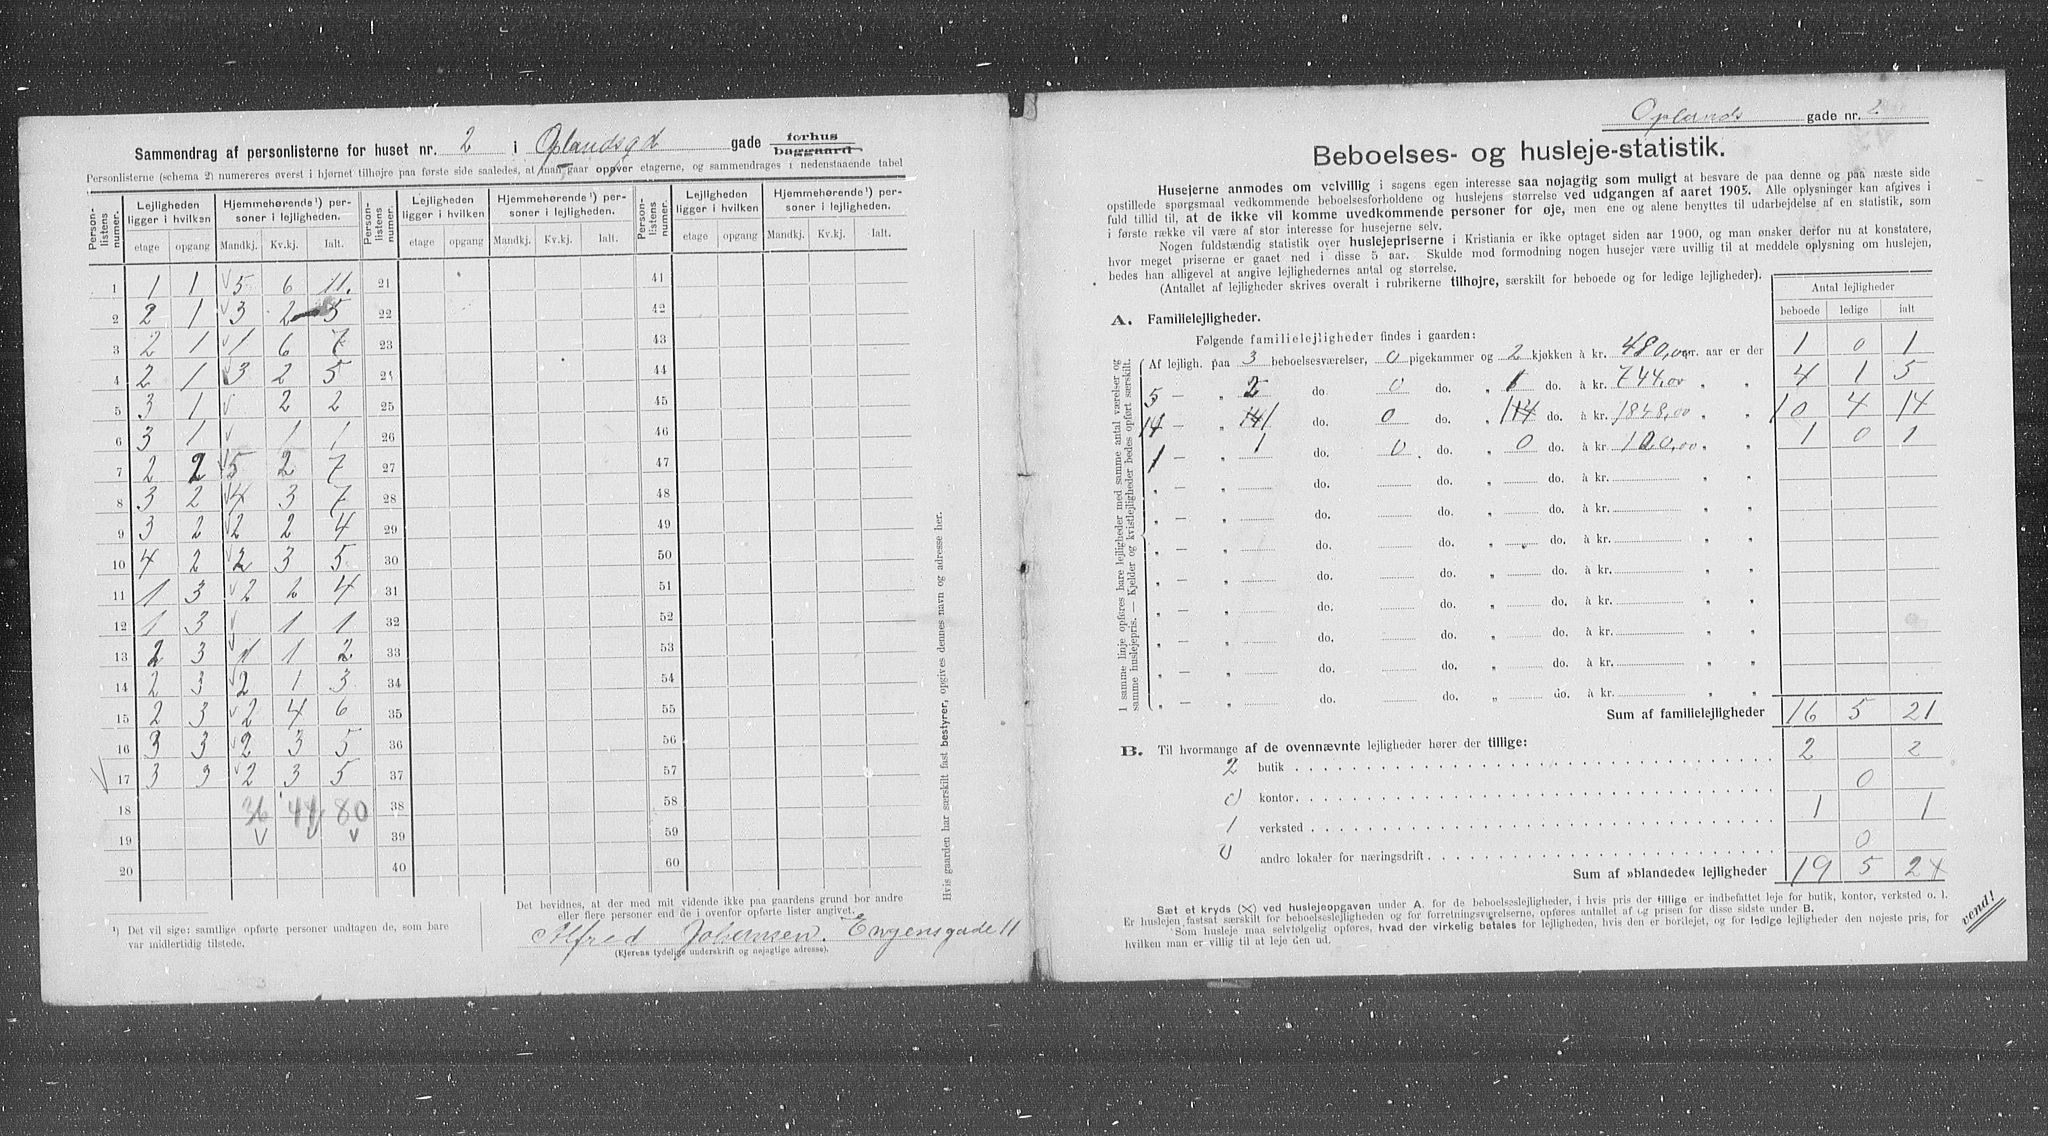 Sammendrag af personlisterne for huset nr. 2 i Oplandsgd gade forhus baggaard
Personlisterne (schema 2) numereres øverst i hjørnet tilhøjre paa første side saaledes, at man gaar opover etagerne, og sammendrages i nedenstaaende tabel
Person-listens nummer. Lejligheden ligger i hvilken Hjemmehørende¹) personer i lejligheden. Person-listens nummer. Lejligheden ligger i hvilken Hjemmehørende¹) personer i lejligheden. Person-listens nummer. Lejligheden ligger i hvilken Hjemmehørende¹) personer i lejligheden.
etage opgang Mandkj. Kv.kj. Ialt. etage opgang Mandkj. Kv.kj. Ialt. etage opgang Mandkj. Kv.kj. Ialt.
1 1 1 5 6 11. 21 41
2 2 1 3 2 5 22 42
3 2 1 1 6 7 23 43
4 2 1 3 2 5 24 44
5 3 1 2 2 25 45
6 3 1 1 1 26 46
7 2 2 5 2 7 27 47
8 3 2 4 3 7 28 48
9 3 2 2 2 4 29 49
10 4 2 2 3 5 30 50
11 1 3 2 2 4 31 51
12 1 3 1 1 32 52
13 2 3 1 1 2 33 53
14 2 3 2 1 3 34 54
15 2 3 2 4 6 35 55
16 3 3 2 3 5 36 56
17 3 3 2 3 5 37 57
18 36 44 80 38 58
19 39 59
20 40 60
Hvis gaarden har særskilt fast bestyrer, opgives dennes navn og adresse her.
¹) Det vil sige: samtlige opførte personer undtagen de, som bare var midlertidig tilstede.
Det bevidnes, at der med mit vidende ikke paa gaardens grund bor andre
eller flere personer end de i ovenfor opførte lister angivet.
Alfred Johansen. Engensgade 11
(Ejerens tydelige underskrift og nøjagtige adresse).
Oplands gade nr. 2
Beboelses- og husleje-statistik.
Husejerne anmodes om velvillig i sagens egen interesse saa nøjagtig som muligt at besvare de paa denne og paa næste side
opstillede spørgsmaal vedkommende beboelsesforholdene og huslejens størrelse ved udgangen af aaret 1905. Alle oplysninger kan afgives i
fuld tillid til, at de ikke vil komme uvedkommende personer for øje, men ene og alene benyttes til udarbejdelse af en statistik, som
i første række vil være af stor interesse for husejerne selv.
Nogen fuldstændig statistik over huslejepriserne i Kristiania er ikke optaget siden aar 1900, og man ønsker derfor nu at konstatere,
hvor meget priserne er gaaet ned i disse 5 aar. Skulde mod formodning nogen husejer være uvillig til at meddele oplysning om huslejen,
bedes han alligevel at angive lejlighedernes antal og størrelse.
(Antallet af lejligheder skrives overalt i rubrikerne tilhøjre, særskilt for beboede og for ledige lejligheder).
Antal lejligheder
beboede ledige ialt
A. Familielejligheder.
Følgende familielejligheder findes i gaarden:
I samme linje opføres bare lejligheder med samme antal værelser og samme huslejepris. — Kjelder og kvistlejligheder bedes opført særskilt.
Af lejligh. paa 3 beboelsesværelser, 0 pigekammer og 2 kjøkken à kr. 480,00 pr. aar er der 1 0 1
5 — „ 2 do. 0 do. „ 1 do. à kr. 744,00 „ „ 4 1 5
14 — „ 1 do. 0 do. „ 1 do. à kr. 1848,00 „ „ 10 4 14
1 — „ 1 do. 0 do. „ 0 do. à kr. 100,00 „ „ 1 0 1
„ — „ do. do. „ do. à kr. „ „
„ — „ do. do. „ do. à kr. „ „
„ — „ do. do. „ do. à kr. „ „
„ — „ do. do. „ do. à kr. „ „
„ — „ do. do. „ do. à kr. „ „
„ — „ do. do. „ do. à kr. „ „
„ — „ do. do. „ do. à kr. „ „
„ — „ do. do. „ do. à kr. „ „
Sum af familielejligheder 16 5 21
B. Til hvormange af de ovennævnte lejligheder hører der tillige:
2 butik 2 2
0 kontor 0
1 verksted 1 1
0 andre lokaler for næringsdrift 0
Sum af »blandede« lejligheder 19 5 24
Sæt et kryds (×) ved huslejeopgaven under A. for de beboelseslejligheder, i hvis pris der tillige er indbefattet leje for butik, kontor, verksted o. l.
Er huslejen fastsat særskilt for beboelseslejligheden og for forretningsværelserne, opføres antallet af og prisen for disse sidste under B.
Som husleje maa selvfølgelig opføres, hvad der virkelig betales for lejligheden, hvis den er bortlejet, og for ledige lejligheder den nøjeste pris, for
hvilken man er villig til at leje den ud.
vend!